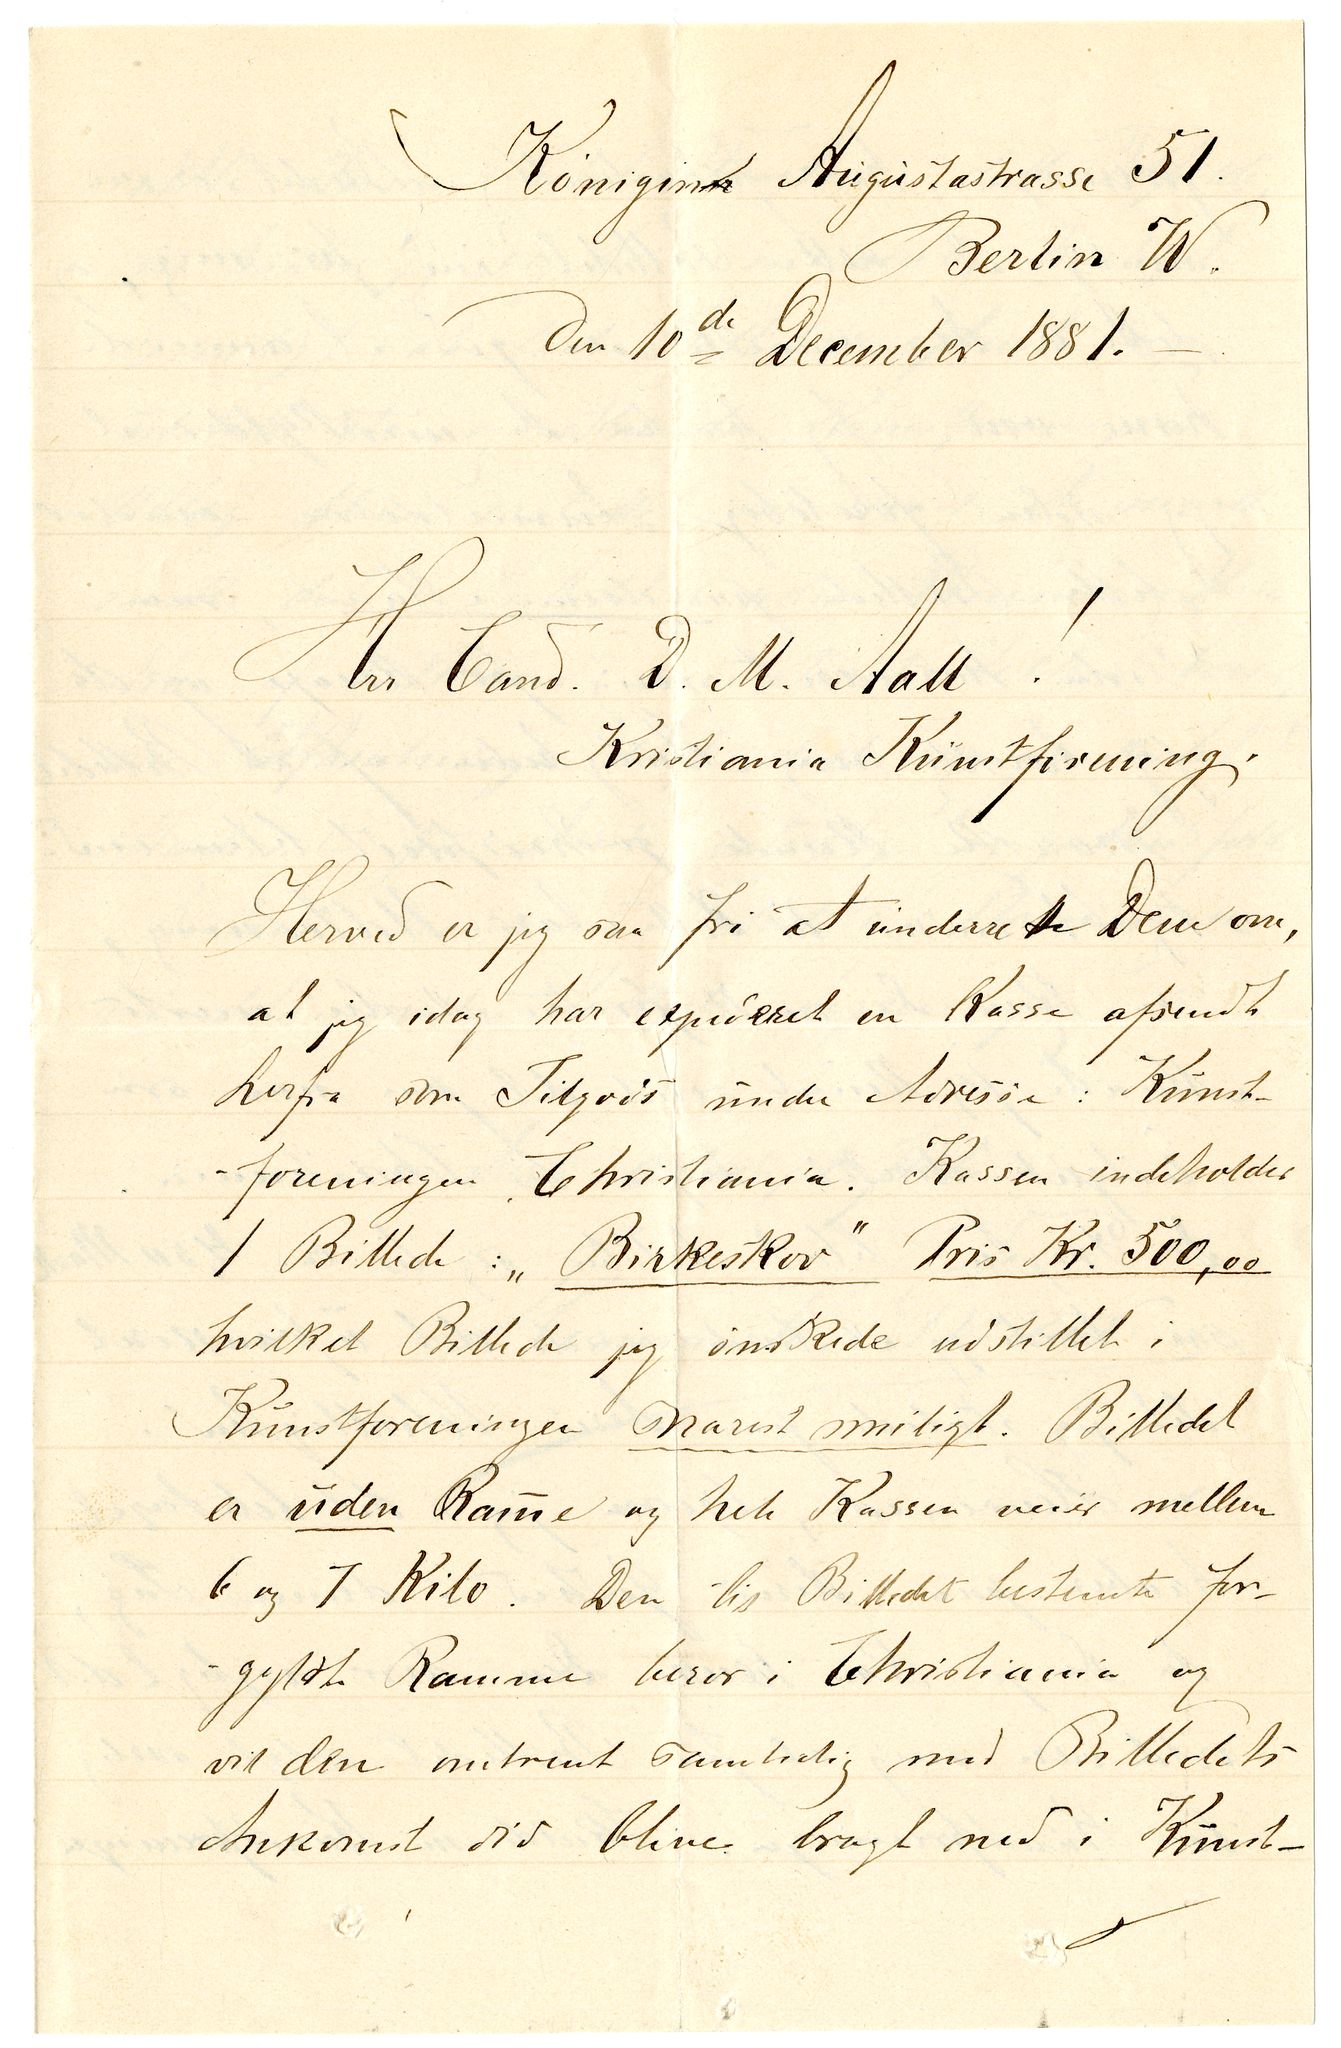 Königin Augustastrasse 51.
Berlin W.
Den 10de December 1881. —
Herr Cand. D. M. Aall !
Kristiania Kunstforening.
Herved er jeg saa fri at underrette Dem om,
at jeg idag har expederet en Kasse afsendt
herfra som Ilgods under Adresse: Kunst-
-foreningen Christiania. Kassen indeholder
1 Billede: „Birkeskov" Pris Kr. 500,00
hvilket Billede jeg önskede udstillet i
Kunstforeningen snarest muligt. Billedet
er uden Ram̅e og hele Kassen veier mellem
6 og 7 Kilo. Den til Billedet bestemte for-
-gyldte Ramme beror i Christiania og
vil den omtrent samtidig med Billedets
Ankomst did blive bragt ned i Kunst-